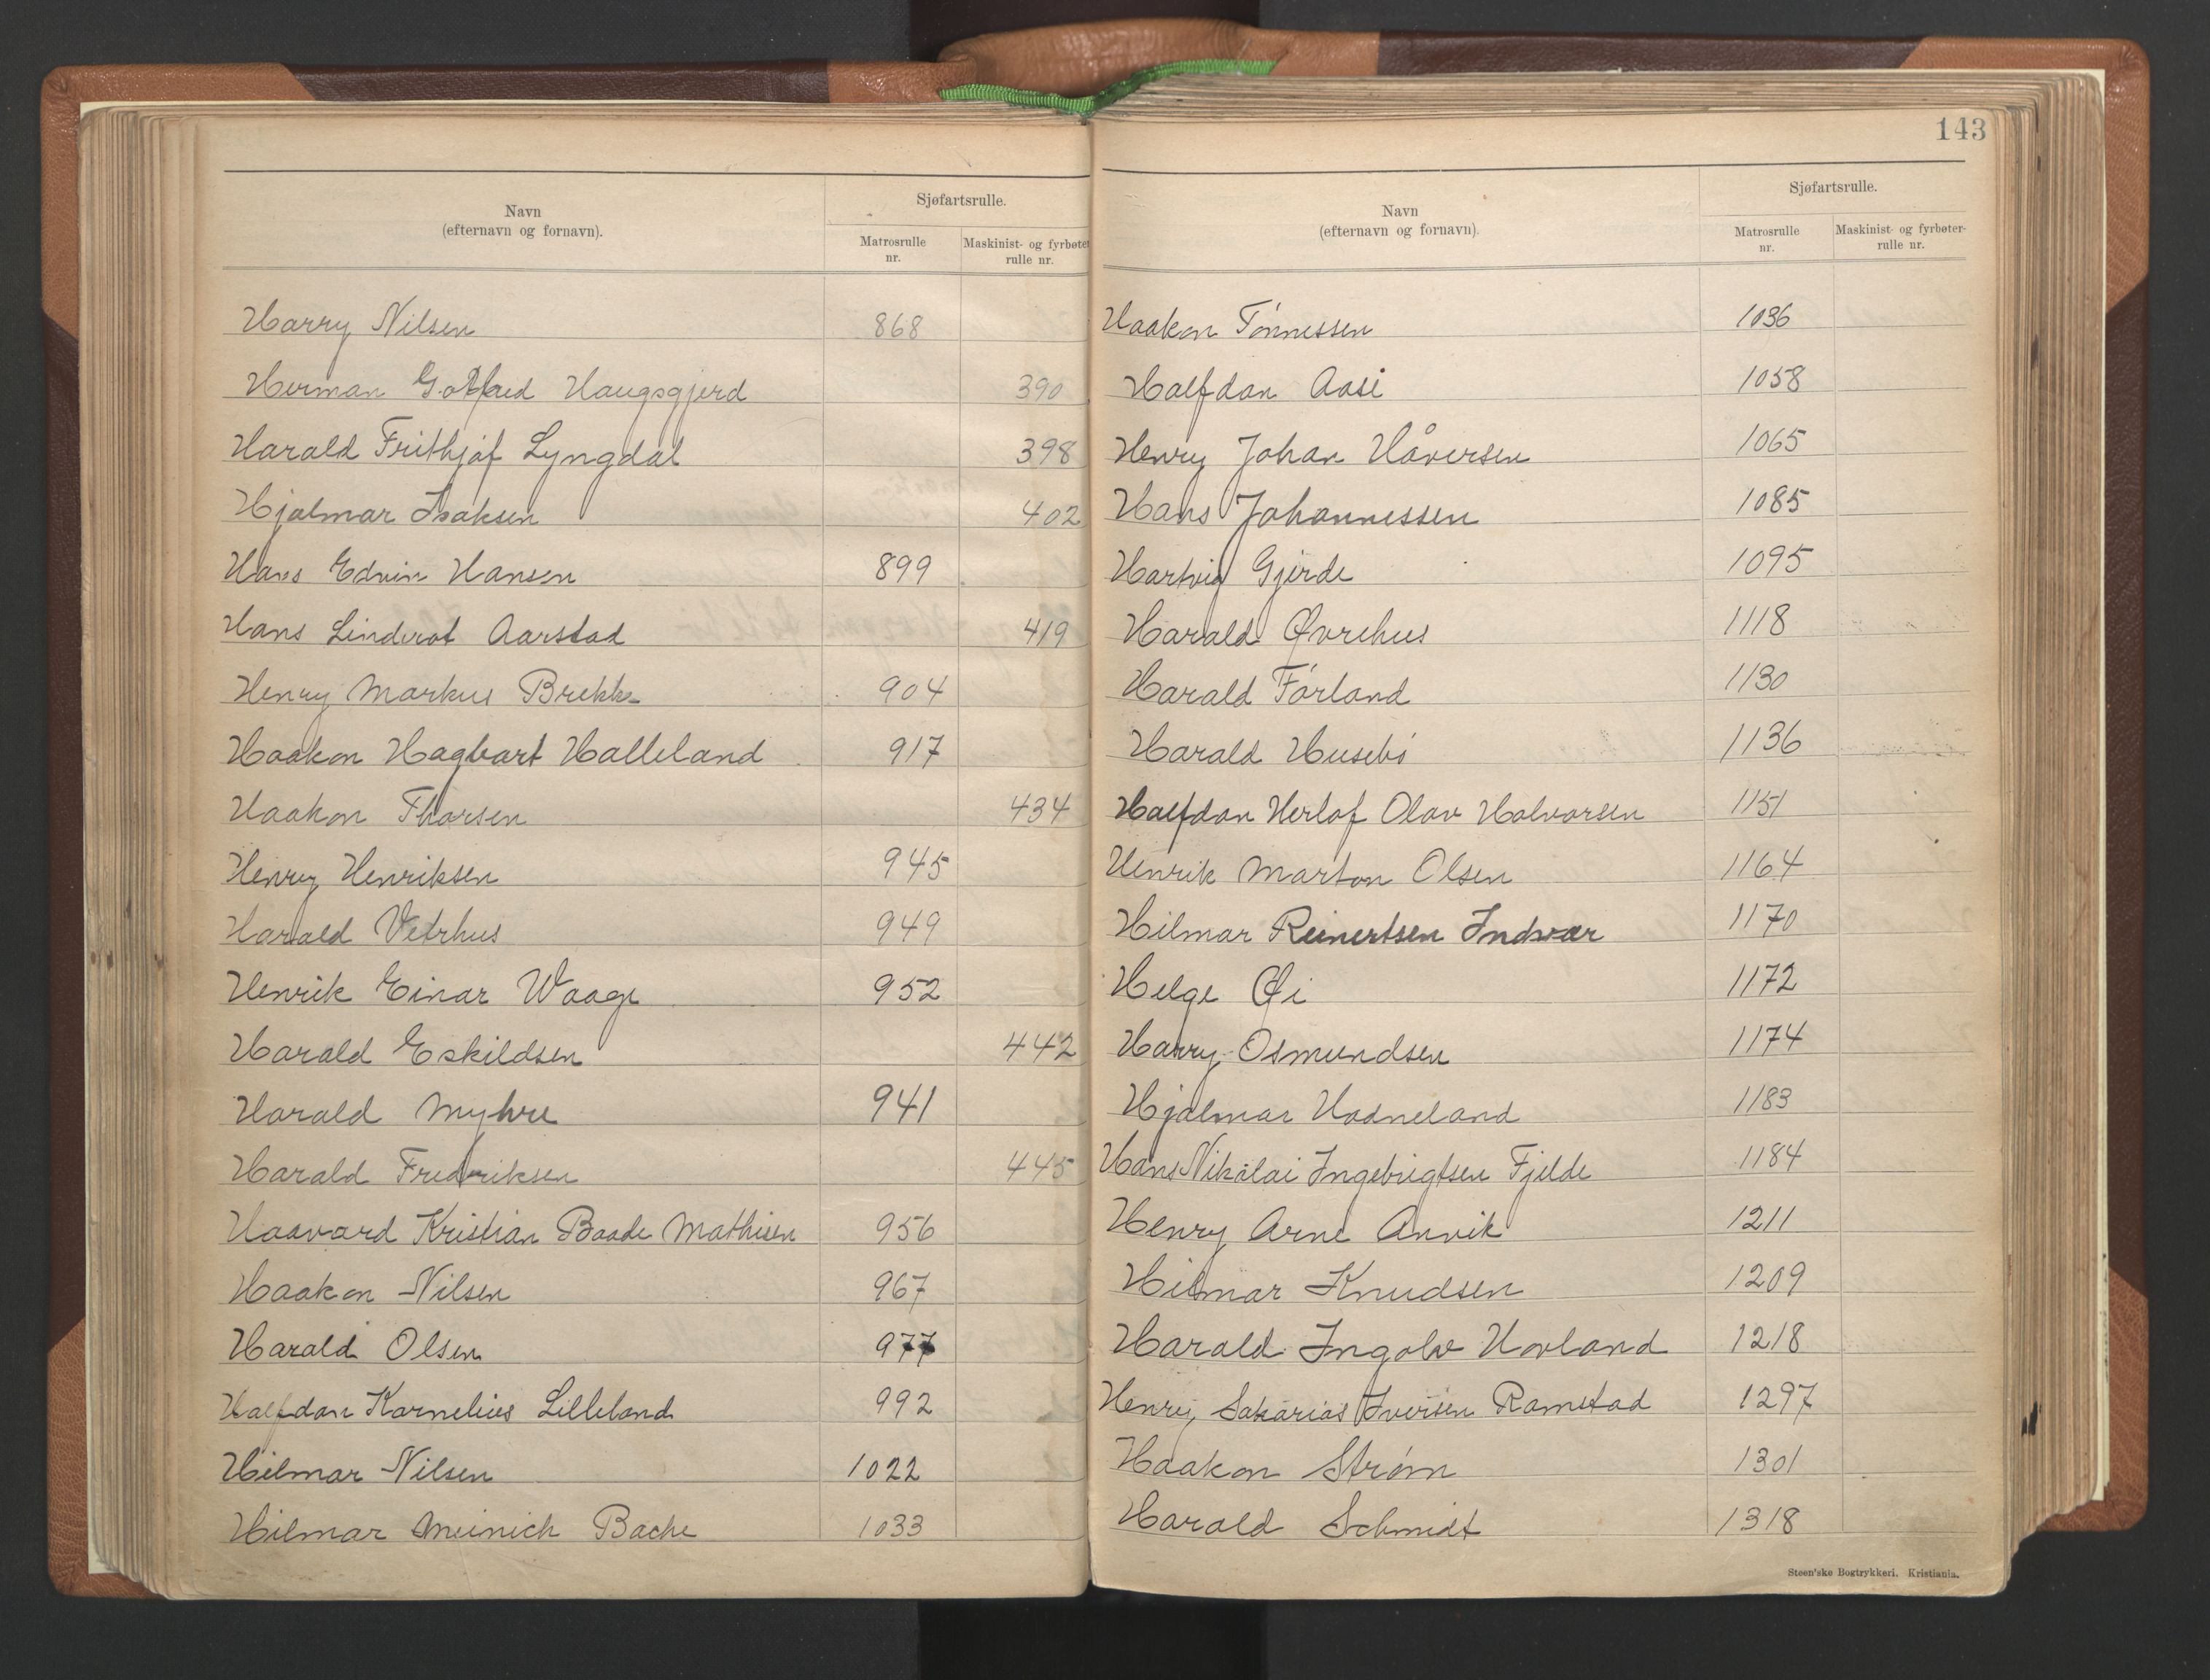 Navn
(efternavn og fornavn).
Sjøfartsrulle.
Matrosrulle
nr.
Maskinist- og fyrbøter
rulle nr.
Harry Nilsen 868
Herman Gottfred Haugsgjerd 390
Harald Frithjof Lyngdal 398
Hjalmar Isaksen 402
Hans Edvin Hansen 899
Hans Linderot Aarstad 419
Henry Markus Brekke 904
Haakon Hagbart Halleland 917
Haakon Thorsen 434
Henry Henriksen 945
Harald Vetrhus 949
Henrik Einar Waage 952
Harald Eskildsen 442
Harald Myhre 941
Harald Fredriksen 445
Haavard Kristian Baade Mathisen 956
Haakon Nilsen 967
Harald Olsen 977
Halfdan Kornelius Lilleland 992
Hilmar Nilsen 1022
Hilmar Meinich Bache 1033
143
Navn
(efternavn og fornavn).
Sjøfartsrulle.
Matrosrulle
nr.
Maskinist- og fyrbøter-
rulle nr.
Haakon Tönnessen 1036
Halfdan Aase 1058
Henry Johan Håversen 1065
Hans Johannessen 1085
Hartvig Gjerde 1095
Harald Øvrehus 1118
Harald Förland 1130
Harald Husebö 1136
Halfdan Herlof Olav Halvorsen 1151
Henrik Marton Olsen 1164
Hilmar Reinertsen Indvær 1170
Helge Øi 1172
Harry Osmundsen 1174
Hjalmar Hadneland 1183
Hans Nikolai Ingebrigtsen Fjelde 1184
Henry Arne Anvik 1211
Hilmar Knudsen 1209
Harald Ingolv Hovland 1218
Henry Sakarias Iversen Ramstad 1297
Haakon Strøm 1301
Harald Schmidt 1318
Steen'ske Bogtrykkeri. Kristiania.